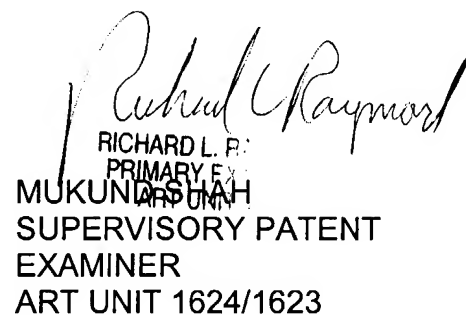 Richard L Raymond
RICHARD L. R
PRIMARY EX
ART UNIT
MUKUND SHAH
SUPERVISORY PATENT
EXAMINER
ART UNIT 1624/1623